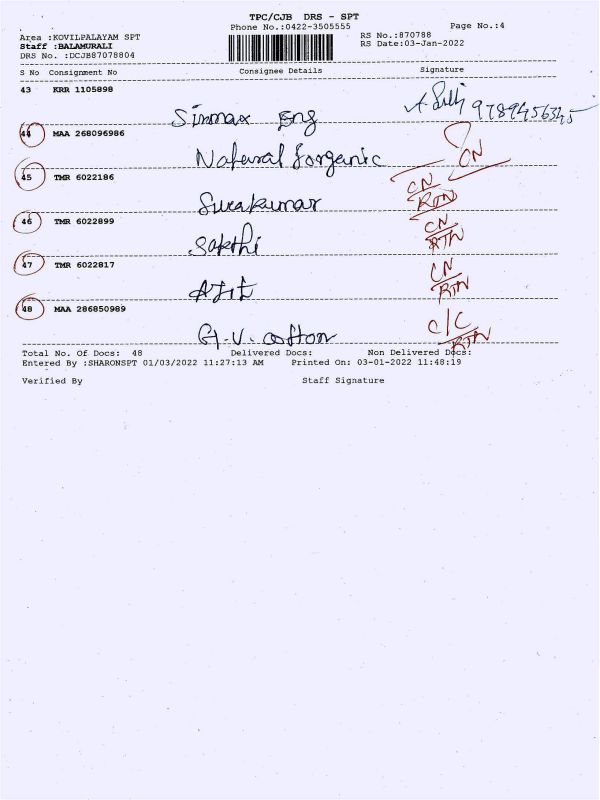 TPC/CJB DRS - SPT
Phone No.:0422-3505555 Page No.:4
Area :KOVILPALAYAM SPT RS No.:870788
Staff :BALAMURALI RS Date:03-Jan-2022
DRS No. :DCJB87078804
S No Consignment No Consignee Details Signature
43 KRR 1105898
Sinmax Eng 9789456345
44 MAA 268096986
Natural forganic CN
45 TMR 6022186
Sivakumar CN RTN
46 TMR 6022899
Sakthi CN RTN
47 TMR 6022817
Ajit CN RTN
48 MAA 286850989
G.V. cotton C/C RTN
Total No. Of Docs: 48 Delivered Docs: Non Delivered Docs:
Entered By :SHARONSPT 01/03/2022 11:27:13 AM Printed On: 03-01-2022 11:48:19
Verified By Staff Signature